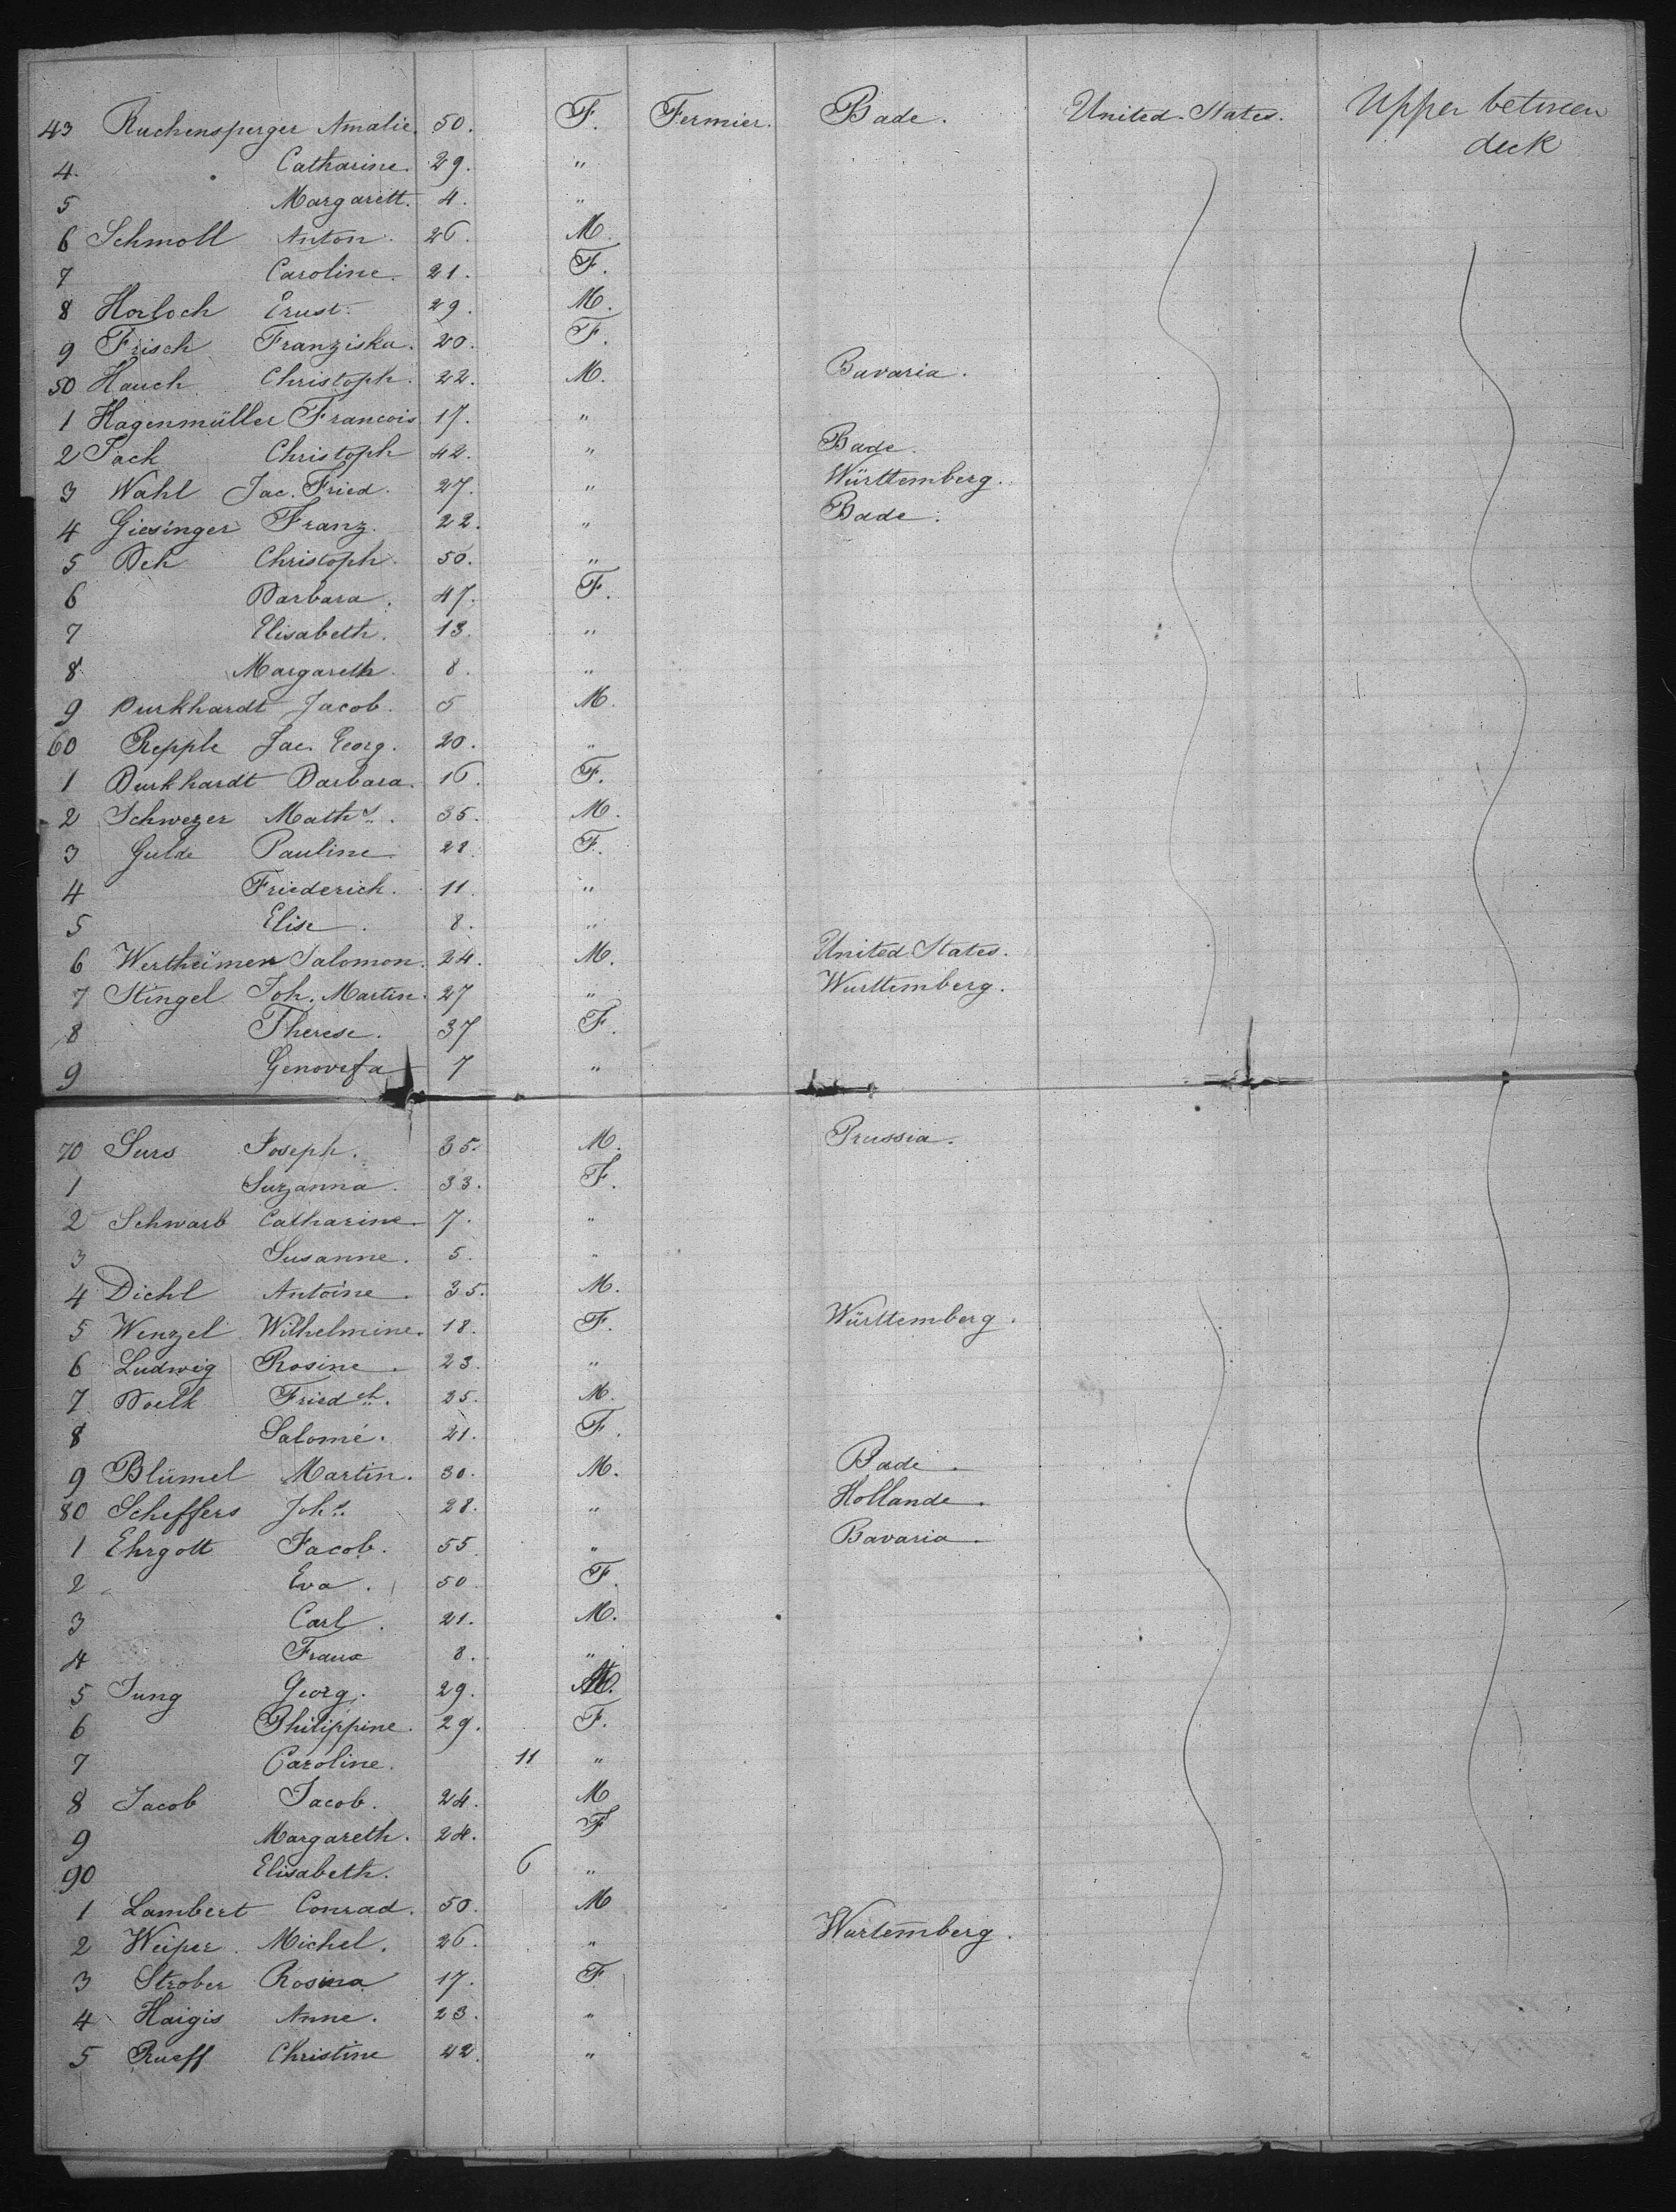 43 Ruchensperger Amalie. 50. F. Fermier. Bade. United States. Upper between deck
4. Catharine. 29. "
5 Margarett. 4. "
6 Schmoll Anton. 26. M.
7 Caroline. 21. F.
8 Horloch Ernst. 29. M.
9 Frisch Franziska. 20. F.
50 Hauch Christoph. 22. M. Bavaria.
1 Hagenmüller Francois 17. "
2 Jack Christoph 42. " Bade.
3 Wahl Jac. Fried. 27. " Württemberg.
4 Giesinger Franz. 22. " Bade.
5 Beh Christoph. 50. "
6 Barbara. 47. F.
7 Elisabeth. 13. "
8 Margareth. 8. "
9 Burkhardt Jacob. 5 M.
60 Repple Jac. Georg. 20. "
1 Burkhardt Barbara. 16. F.
2 Schwezer Maths. 35. M.
3 Gulde Pauline 28. F.
4 Friederich. 11. "
5 Elise. 8. "
6 Wertheimer Salomon. 24. M. United States.
7 Stingel Joh. Martin. 27 " Wurttemberg.
8 Therese. 37 F.
9 Genovefa 7 "
70 Surs Joseph. 35. M. Prussia.
1 Suzanna. 33. F.
2 Schwarb Catharine. 7. "
3 Susanne. 5. "
4 Diehl Antoine. 35. M.
5 Wenzel Wilhelmine. 18. F. Württemberg.
6 Ludwig Rosine. 23. "
7 Boelk Friedch. 25. M.
8 Salomé. 21. F.
9 Blümel Martin. 30. M. Bade.
80 Scheffers Johs. 28. " Hollande.
1 Ehrgott Jacob. 55 " Bavaria.
2 Eva. 50. F.
3 Carl. 21. M.
4 Franz 8. "
5 Jung Georg. 29. M.
6 Philippine. 29. F.
7 Caroline. 11 "
8 Jacob Jacob. 24. M
9 Margareth. 24. F
90 Elisabeth. 6 "
1 Lambert Conrad. 50. M
2 Weiper Michel. 26. " Wurtemberg.
3 Strober Rosina 17. F
4 Haigis Anne. 23. "
5 Rueff Christine 42. "